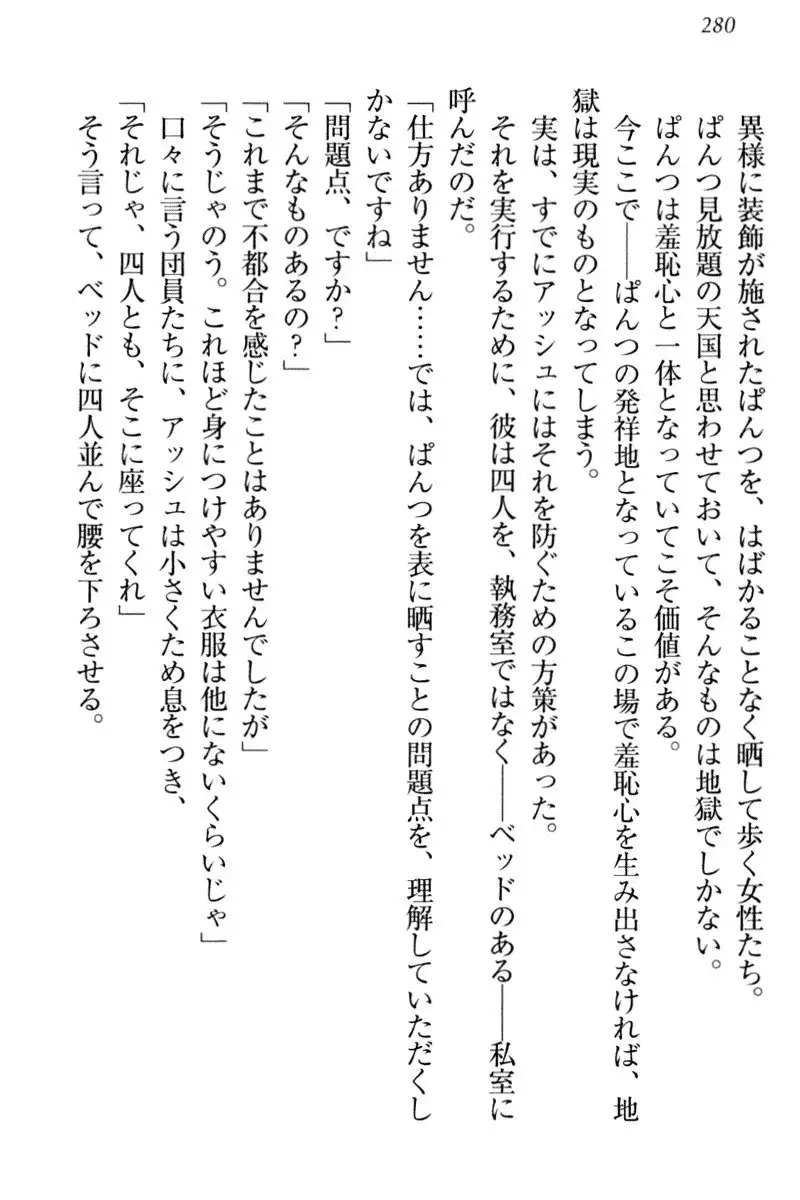 280
異様に装飾が施されたぱんつを、はばかることなく晒して歩く女性たち。
ぱんつ見放題の天国と思わせておいて、そんなものは地獄でしかない。
ぱんつは羞恥心と一体となっていてこそ価値がある。
今ここで――ぱんつの発祥地となっているこの場で羞恥心を生み出さなければ、地
獄は現実のものとなってしまう。
実は、すでにアッシュにはそれを防ぐための方策があった。
それを実行するために、彼は四人を、執務室ではなく――ベッドのある――私室に
呼んだのだ。
「仕方ありません……では、ぱんつを表に晒すことの問題点を、理解していただくし
かないですね」
「問題点、ですか？」
「そんなものあるの？」
「これまで不都合を感じたことはありませんでしたが」
「そうじゃのう。これほど身につけやすい衣服は他にないくらいじゃ」
口々に言う団員たちに、アッシュは小さくため息をつき、
「それじゃ、四人とも、そこに座ってくれ」
そう言って、ベッドに四人並んで腰を下ろさせる。